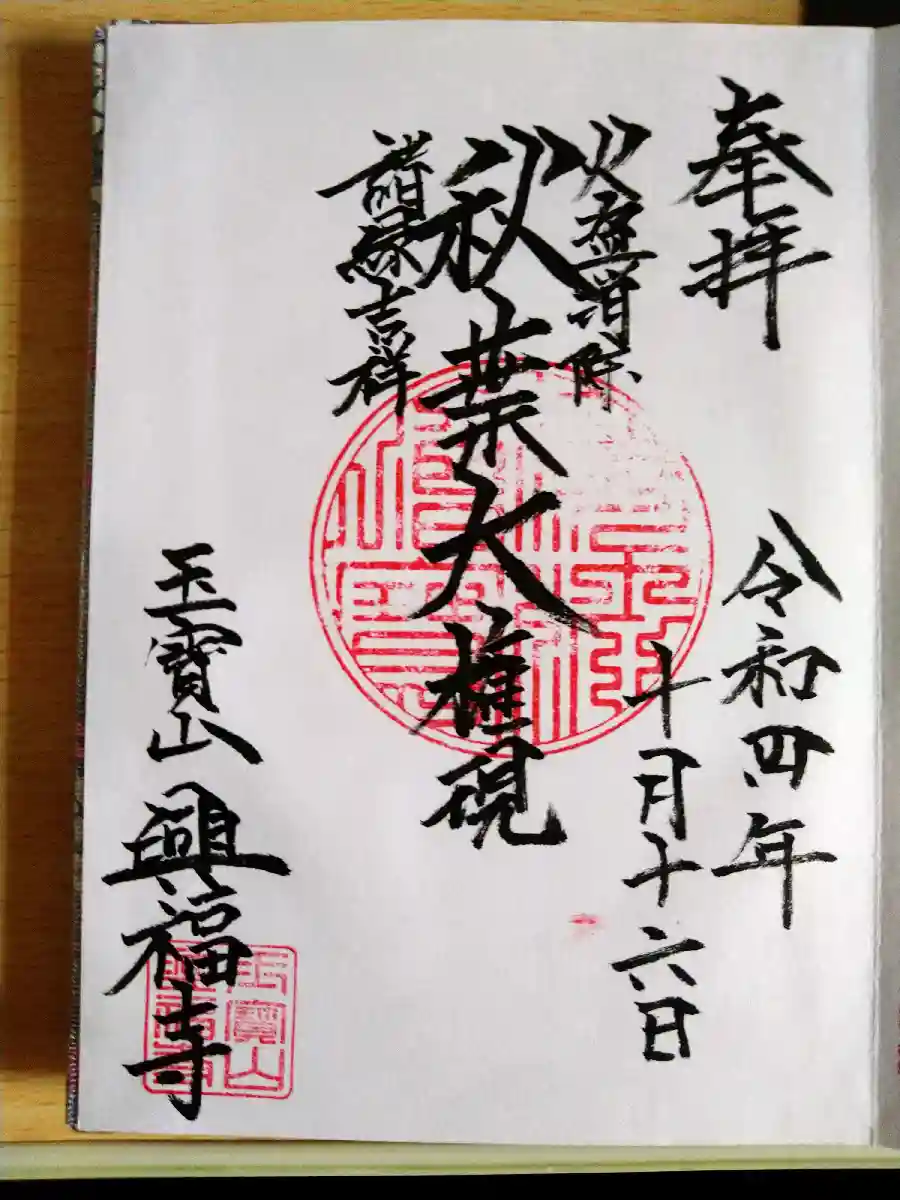 奉拝
令和四年
十月十六日
火盗消除
秋葉大権現
諸縁吉祥
玉寶山
興福寺
玉寶山
興福寺